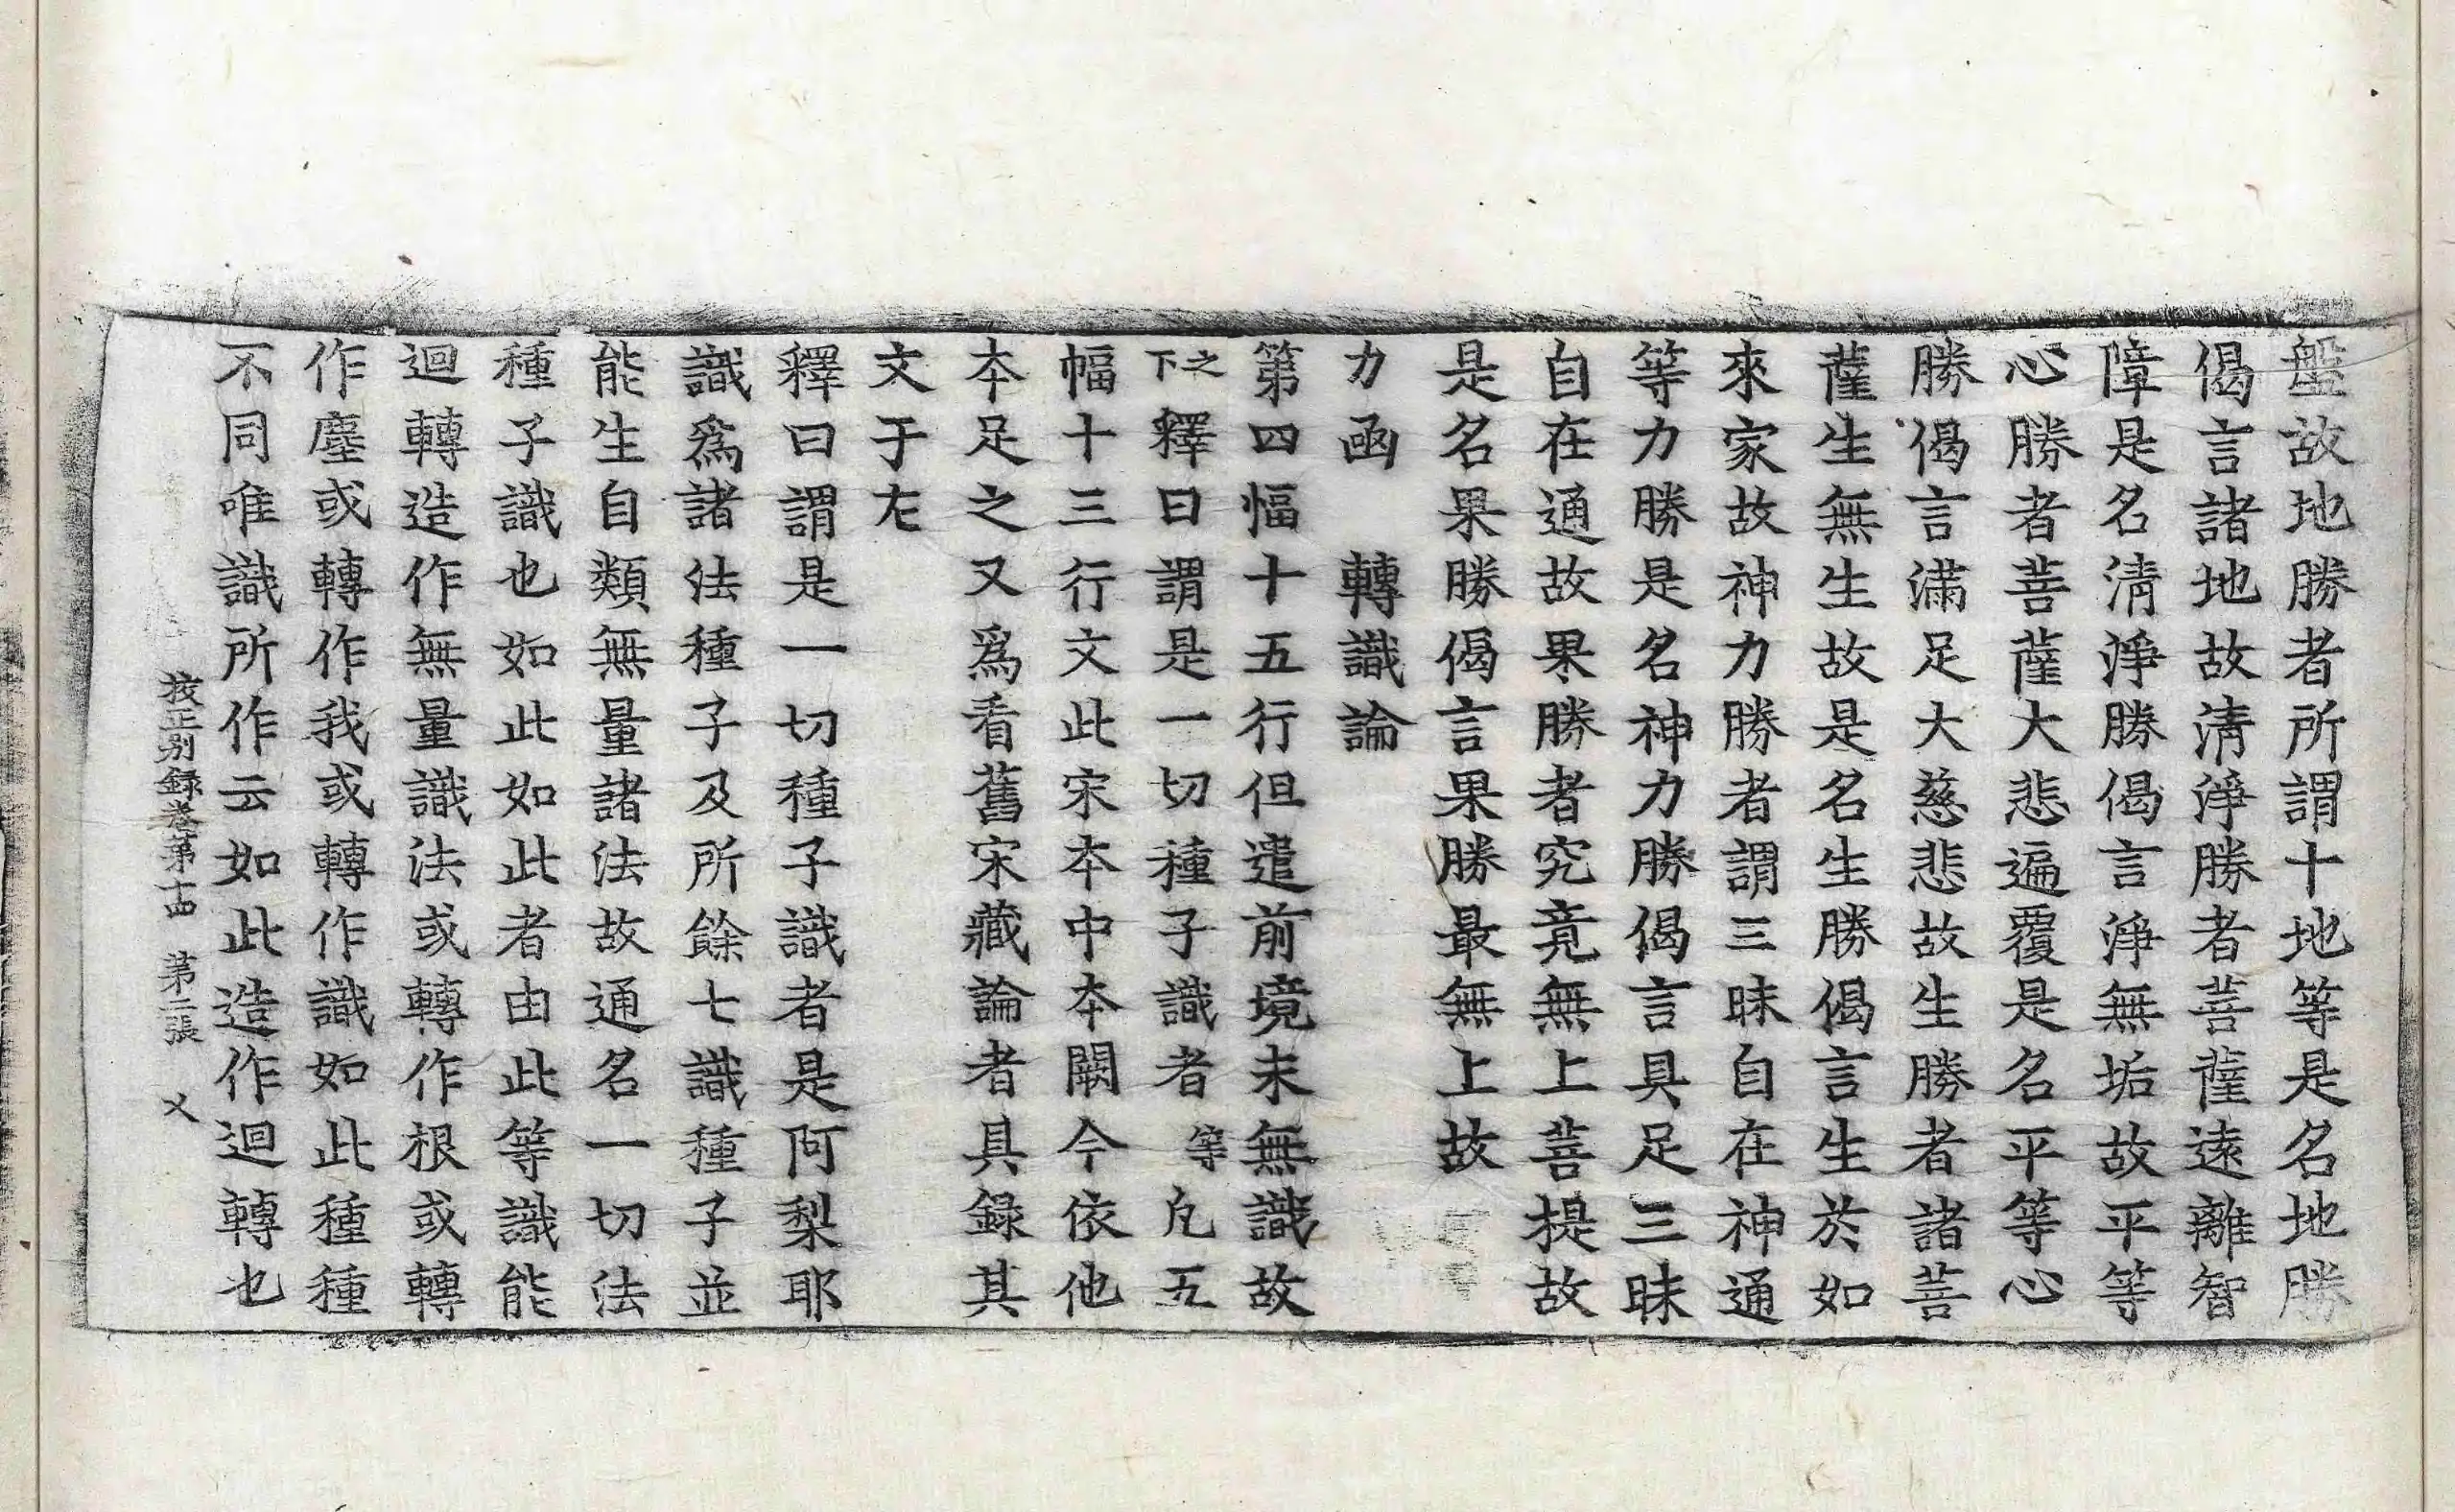 盤故地勝者所謂十地等是名地勝
偈言諸地故清淨勝者菩薩遠離智
障是名清淨勝偈言淨無垢故平等
心勝者菩薩大悲遍覆是名平等心
勝偈言滿足大慈悲故生勝者諸菩
薩生無生故是名生勝偈言生於如
來家故神力勝者謂三昧自在神通
等力勝是名神力勝偈言具足三昧
自在通故果勝者究竟無上菩提故
是名果勝偈言果勝最無上故
力函　轉識論
第四幅十五行但遣前境未無識故
之下釋曰謂是一切種子識者等凡五
幅十三行文此宋本中本闕今依他
本足之又爲看舊宋藏論者具録其
文于左
釋曰謂是一切種子識者是阿梨耶
識爲諸法種子及所餘七識種子並
能生自類無量諸法故通名一切法
種子識也如此如此者由此等識能
迴轉造作無量識法或轉作根或轉
作塵或轉作我或轉作識如此種種
不同唯識所作云如此造作迴轉也
挍正別録卷第十四　第二張　乂